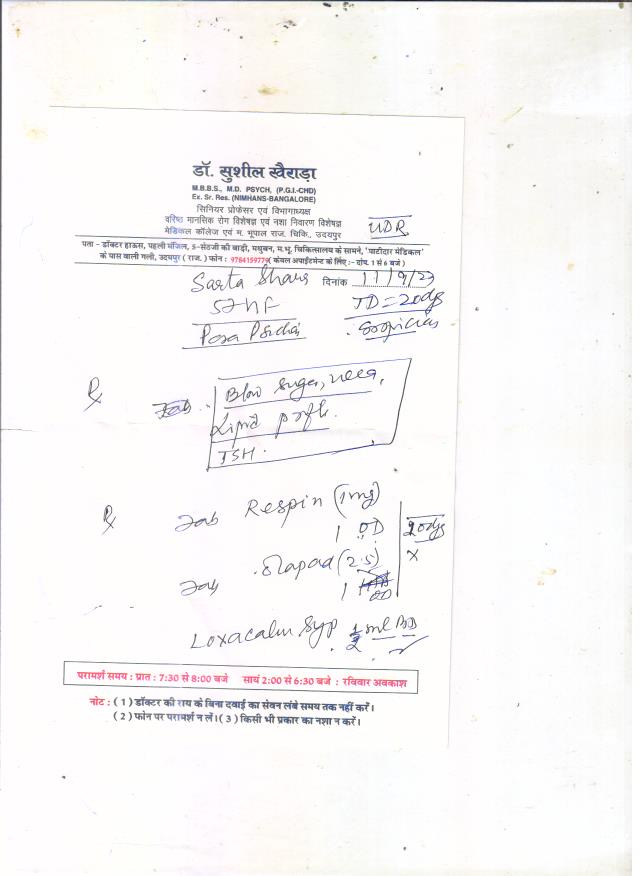 डॉ. सुशील खैराड़ा
M.B.B.S., M.D. PSYCH, (P.G.I.-CHD)
Ex. Sr. Res. (NIMHANS-BANGALORE)
सिनियर प्रोफेसर एवं विभागाध्यक्ष
वरिष्ठ मानसिक रोग विशेषज्ञ एवं नशा निवारण विशेषज्ञ
मेडिकल कॉलेज एवं म. भूपाल राज. चिकि., उदयपुर
UDR
पता - डॉक्टर हाऊस, पहली मंजिल, 5-सेठजी की बाड़ी, मधुबन, म.भू. चिकित्सालय के सामने, 'पाटीदार मेडिकल'
के पास वाली गली, उदयपुर ( राज. ) फोन : 9784159779 ( केवल अपॉइंटमेन्ट के लिए :- दोप. 1 से 6 बजे )
दिनांक
TD = 20dys
Tab
Blood Sugar,
Lipid profile.
TSH.
Tab Respin (1mg)
1 OD
20dys
x
Tab (2.5)
1 OD
Loxacalm Syp 1/2 ml BD
परामर्श समय : प्रात : 7:30 से 8:00 बजे सायं 2:00 से 6:30 बजे : रविवार अवकाश
नोट : ( 1 ) डॉक्टर की राय के बिना दवाई का सेवन लंबे समय तक नहीं करें।
( 2 ) फोन पर परामर्श न लें। ( 3 ) किसी भी प्रकार का नशा न करें।